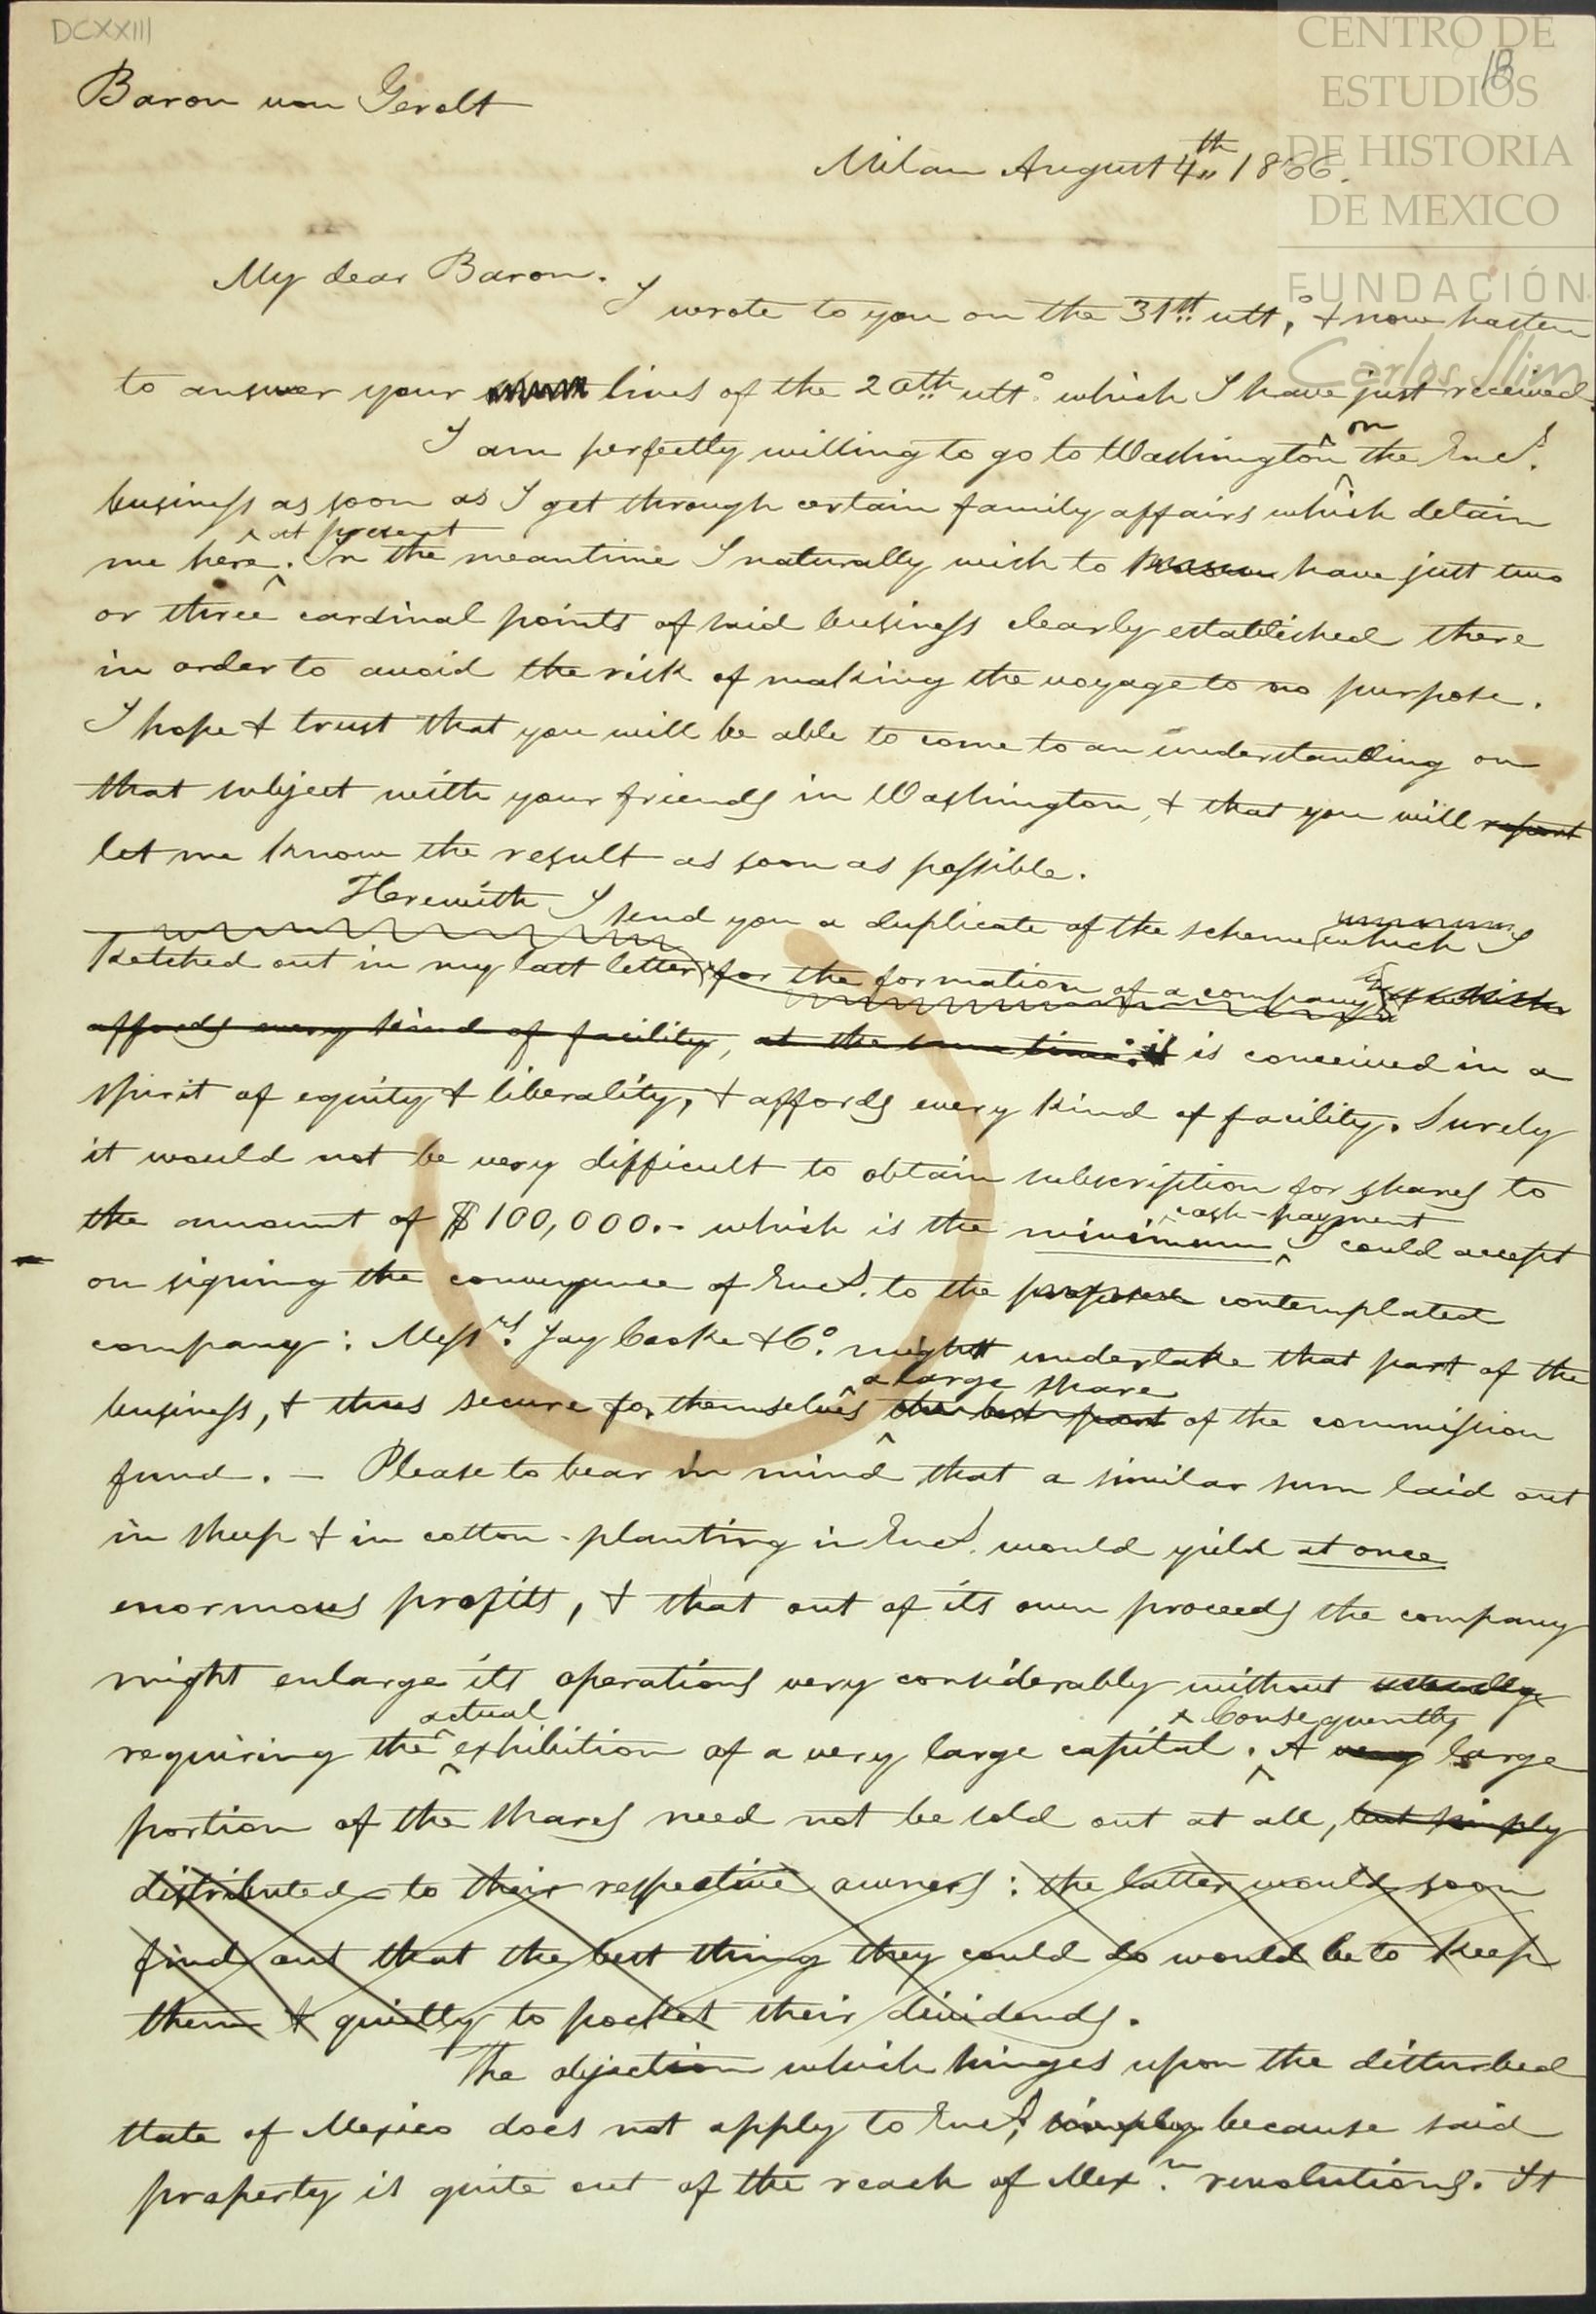 DCXXIII
18
CENTRO DE
ESTUDIOS
DE HISTORIA
DE MEXICO
FUNDACIÓN
Carlos Slim
Baron von Gerolt
Milan August 4th 1866.
My dear Baron.
I wrote to you on the 31th ult°, & now hasten
to answer your lines of the 20th ult° which I have just received.
I am perfectly willing to go to Washington on the Encd.
business as soon as I get through certain family affairs which detain
me here at present. In the meantime I naturally wish to have just two
or three cardinal points of said business clearly established there
in order to avoid the risk of making the voyage to no purpose.
I hope & trust that you will be able to come to an understanding on
that subject with your friends in Washington, & that you will report
let me know the result as soon as possible.
Herewith I send you a duplicate of the scheme which I
sketched out in my last letter for the formation of a company
affords every kind of facility, at the same time: it is conceived in a
spirit of equity & liberality, & affords every kind of facility. Surely
it would not be very difficult to obtain subscription for shares to
the amount of $100,000.- which is the minimum cash-payment I could accept
on signing the conveyance of Encd. to the proposed contemplated
company: Messrs. Jay Cooke & C°. might undertake that part of the
business, & thus secure for themselves a large share the best part of the commission
fund. — Please to bear in mind that a similar sum laid out
in sheep & in cotton-planting in Encd. would yield at once
enormous profits, & that out of its own proceeds the company
might enlarge its operations very considerably without
requiring the actual exhibition of a very large capital. & Consequently A very large
portion of the shares need not be sold out at all, but simply
distributed to their respective owners: the latter would soon
find out that the best thing they could do would be to keep
them & quietly to pocket their dividends.
The objection which hinges upon the disturbed
state of Mexico does not apply to Encd, simply because said
property is quite out of the reach of Mexn. revolutions. It